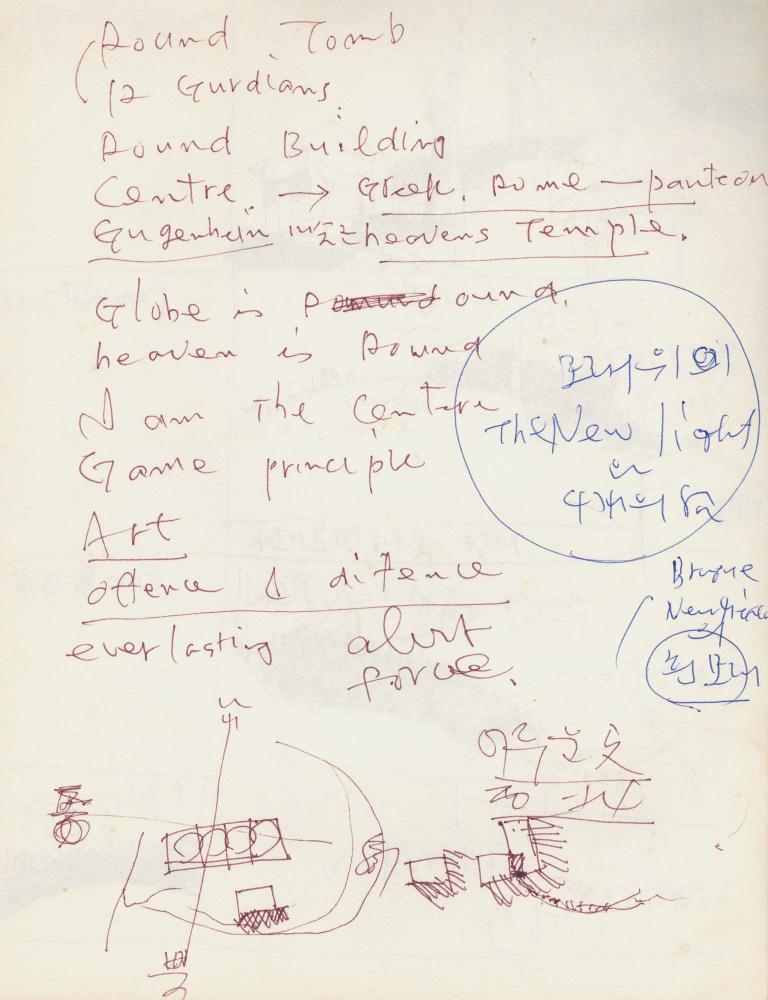 Round Tomb
12 Gurdians
Round Building
Centre → Greek. Rome — panteon
Gugenhein heavens Temple.
Globe is Round.
heaven is Round
I am The Centere
Game principle
Art
offence & difence
everlasting alert
force.
모래 위의
The New light
4개의
Brogne
흰 모래
동
북